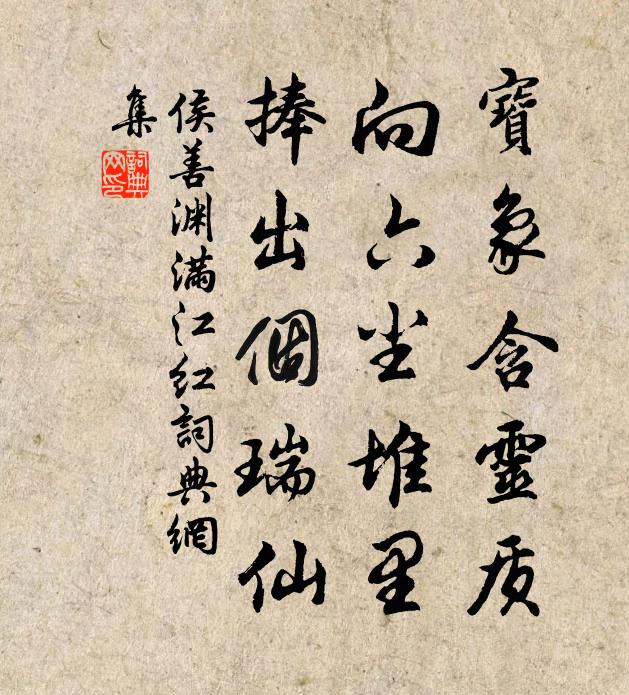 寶象含靈质
向六尘堆里
捧出個瑞仙
侯善渊满江红詞典網
集
詞典网印